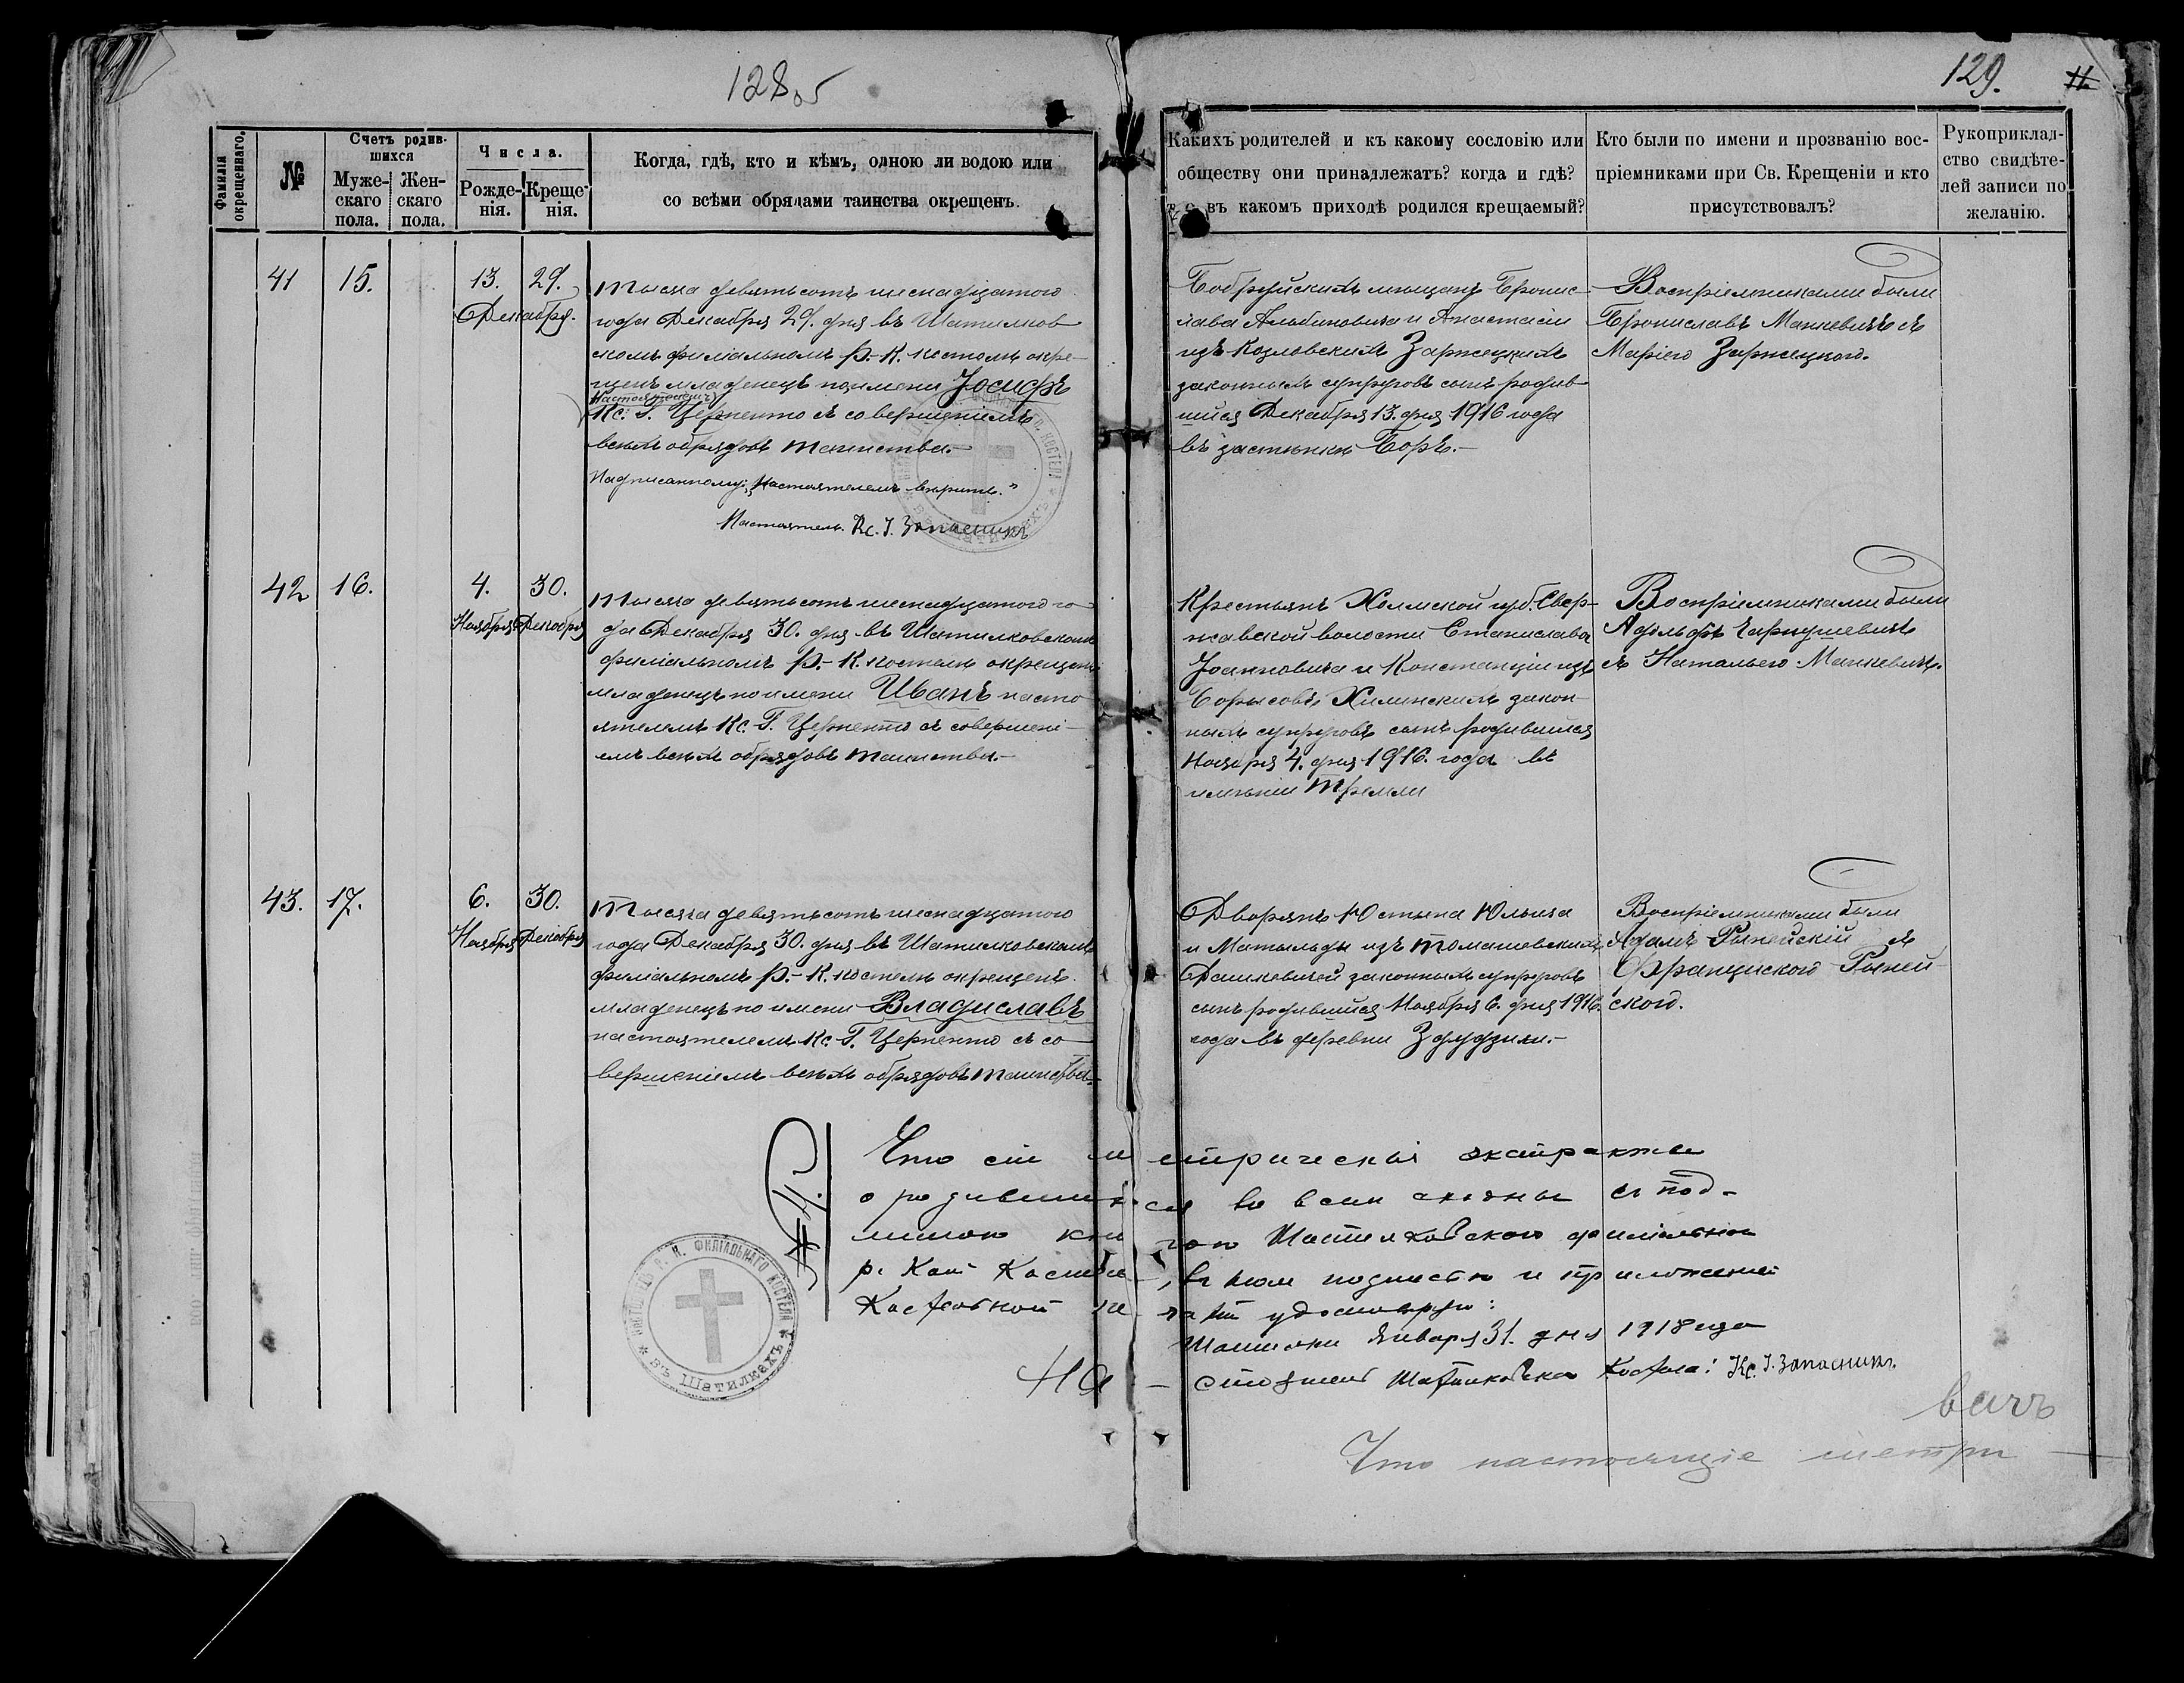 128об
129.
11.
Фамилія окрещеннаго.
№
Счетъ родив-
шихся
Муже-
скаго
пола.
Жен-
скаго
пола.
Числа.
Рожде-
нія.
Креще-
нія.
Когда, гдѣ, кто и кѣмъ, одною ли водою или
со всѣми обрядами таинства окрещенъ.
Какихъ родителей и къ какому сословію или
обществу они принадлежатъ? когда и гдѣ?
въ какомъ приходѣ родился крещаемый?
Кто были по имени и прозванію вос-
пріемниками при Св. Крещеніи и кто
присутствовалъ?
Рукоприклад-
ство свидѣте-
лей записи по
желанію.
41
15.
13.
29.
Декабря.
Тысяча девятьсотъ шеснадцатого
года Декабря 29. дня въ Шатилков-
скомъ филіальномъ Р.-К. костелѣ окре-
щенъ младенецъ по имени Іосифъ
Настоятелемъ
Кс. Г. Церпенто съ совершеніемъ
всѣхъ обрядовъ таинства.-
Надписанному: „Настоятелемъ вѣрить."
Настоятель Кс. І. Запасникъ
Бобруйскихъ мѣщанъ Бронис-
лава Альбиновича и Анастасіи
изъ Козловскихъ Заржецкихъ
законныхъ супруговъ сынъ родив-
шійся Декабря 13. дня 1916 года
въ застѣнкѣ Боръ.-
Воспріемниками были
Брониславъ Манкевичъ съ
Маріею Заржецкою.
42
16.
4.
30.
Ноября
Декабря
Тысяча девятьсотъ шеснадцатого го-
да Декабря 30. дня въ Шатилковскомъ
филіальномъ Р.-К. костелѣ окрещенъ
младенецъ по имени Иванъ насто-
ятелемъ Кс. Г. Церпенто съ совершені-
емъ всѣхъ обрядовъ таинства.-
Крестьянъ Холмской губ. Свер-
жавской волости Станислава
Іоанновича и Констанціи изъ
Борысовъ Хилинскихъ закон-
ныхъ супруговъ сынъ родившійся
Ноября 4. дня 1916. года въ
имѣніи Тремли
Воспріемниками были
Адольфъ Гарнушевичъ
съ Натальею Манкевичъ.
43.
17.
6.
30.
Ноября
Декабря
Тысяча девятьсотъ шеснадцатого
года Декабря 30. дня въ Шатилковскомъ
филіальномъ Р.-К. костелѣ окрещенъ
младенецъ по имени Владиславъ
настоятелемъ Кс. Г. Церпенто съ со-
вершеніемъ всѣхъ обрядовъ таинства.-
Дворянъ Юстына Юльича
и Матыльды изъ Томашевскихъ
Дашкевичей законныхъ супруговъ
сынъ родившійся Ноября 6. дня 1916.
года въ деревни Здудичи.-
Воспріемниками были
Адамъ Рынейскій съ
Францишкою Рыней-
скою.
Что сіи метрическія экстракты
о родившихся во всемъ сходны съ под-
линною книгою Шатилковскаго филіальнаго
Р. Кат. Костела, въ томъ подписью и приложеніемъ
Костельной печати удостовѣряю:
Шатилки Января 31. дня 1918 года
Настоятель Шатилковскаго Костела: Кс. І. Запасникъ.
вачъ
Что настоящіе метри-
Р. К. ФИЛІАЛЬНАГО КОСТЕЛА * ВЪ ШАТИЛКАХЪ *